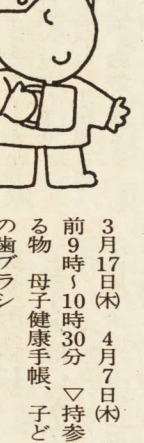 3月17日㈭ 4月7日㈭
前9時～10時30分 ▽持参
る物 母子健康手帳、子ど
の歯ブラシ